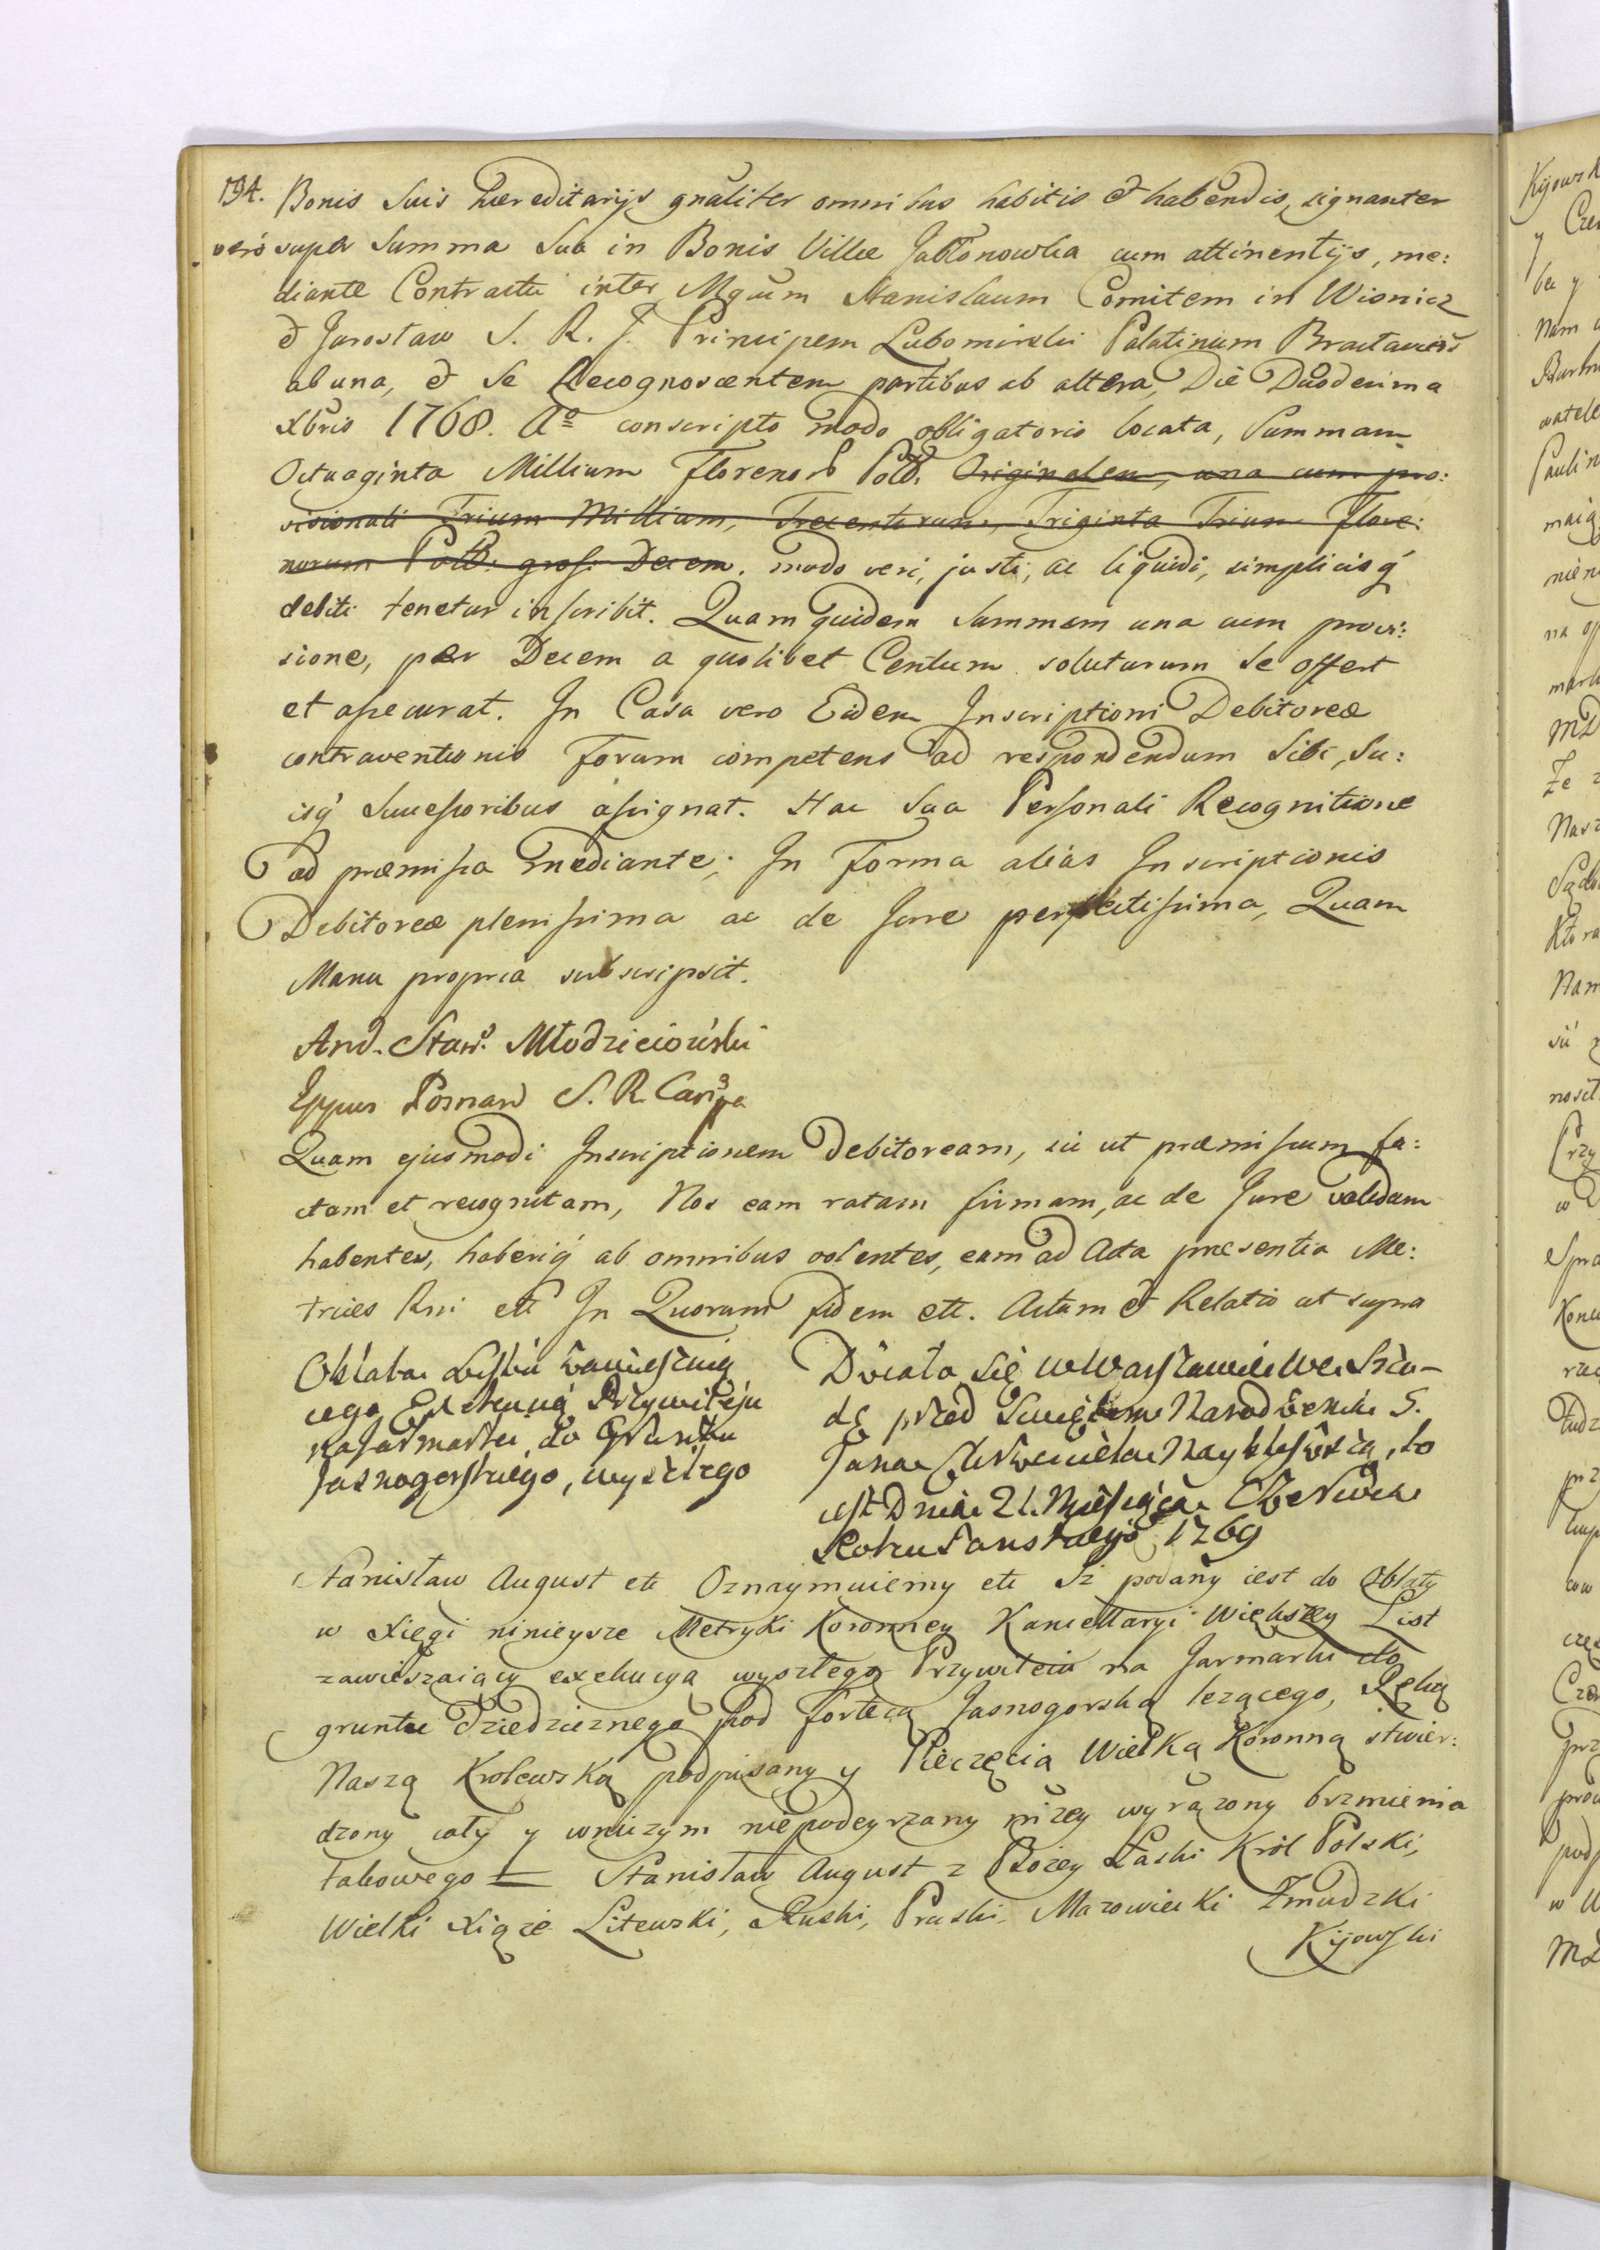 194. Bonis Suis hæreditarijs gnãliter omnibus habitis et habendis, signanter
vero super Summa Sua in Bonis Villæ Jabłonowka cum attinentijs, me:
diante Contractu inter Mgcum Stanislaum Comitem in Wisnicz
et Jarosław S. R. J. Principem Lubomirski Palatinum Braclaviens
ab una, et Se Recognoscentem partibus ab altera, Die Duodecima
Xbris 1768. Aº conscripto modo obligatorio locata, Summam
Octuaginta Millium Florenor Poll. Originalem, una cum pro:
visionali Trium Millium, Trecentorum, Triginta Trium Flore:
norum Poll. gross. Decem. modo veri, justi, ac liquidi, simplicisq́
debiti tenetur inscribit. Quam quidem Summam una cum provi:
sione, per Decem a quolibet Centum soluturum se offert
et assecurat. In Casu vero Eidem Inscriptioni Debitoreæ
contraventionis Forum competens ad respondendum Sibi, Su:
isq́ Successoribus assignat. Hac Sua Personali Recognitione
ad præmissa mediante; In Forma alias Inscriptionis
Debitoreæ plenissima ac de Jure perfectissima, Quam
Manu propria subscripsit.
And. Stan. Młodzieiowski
Eppus Posnan S. R. Canc
Quam ejusmodi Inscriptionem Debitoream, sic ut præmissum fa:
ctam et recognitam, Nos eam ratam firmam, ac de Jure validam
habentes, haberiq́ ab omnibus volentes, eam ad Acta præsentia Me:
trices Rni ett In Quorum fidem ett. Actum et Relatio ut supra
Oblata Listu zawieszaią
cego Exekucyą Przywileju
na Jarmarki do Gruntu
Jasnogorskiego, wyszłego
Działo się w Warszawie we Szro-
dę przed Swiętem Narodzenia S.
Jana Chrzciciela naybliższą, to
iest Dnia 21. Miesiąca Czerwca
Roku Panskiego 1769
Stanisław August ett Oznaymuiemy ett Iż podany iest do Oblaty
w Xięgi ninieysze Metryki Koronney Kancellaryi Większey List
zawieszaiący exekucyą wyszłego Przywileiu na Jarmarki do
gruntu Dziedzicznego pod Fortecą Jasnogorską leżącego, Ręką
Naszą Krolewską podpisany y Pieczęcią Wielką Koronną stwier:
dzony cały y wniczym niepodeyrzany niżey wyrażony brzmienia
takowego — Stanisław August z Bożey Łaski Krol Polski,
Wielki Xiąże Litewski, Ruski, Pruski, Mazowiecki Zmudzki
Kijowski